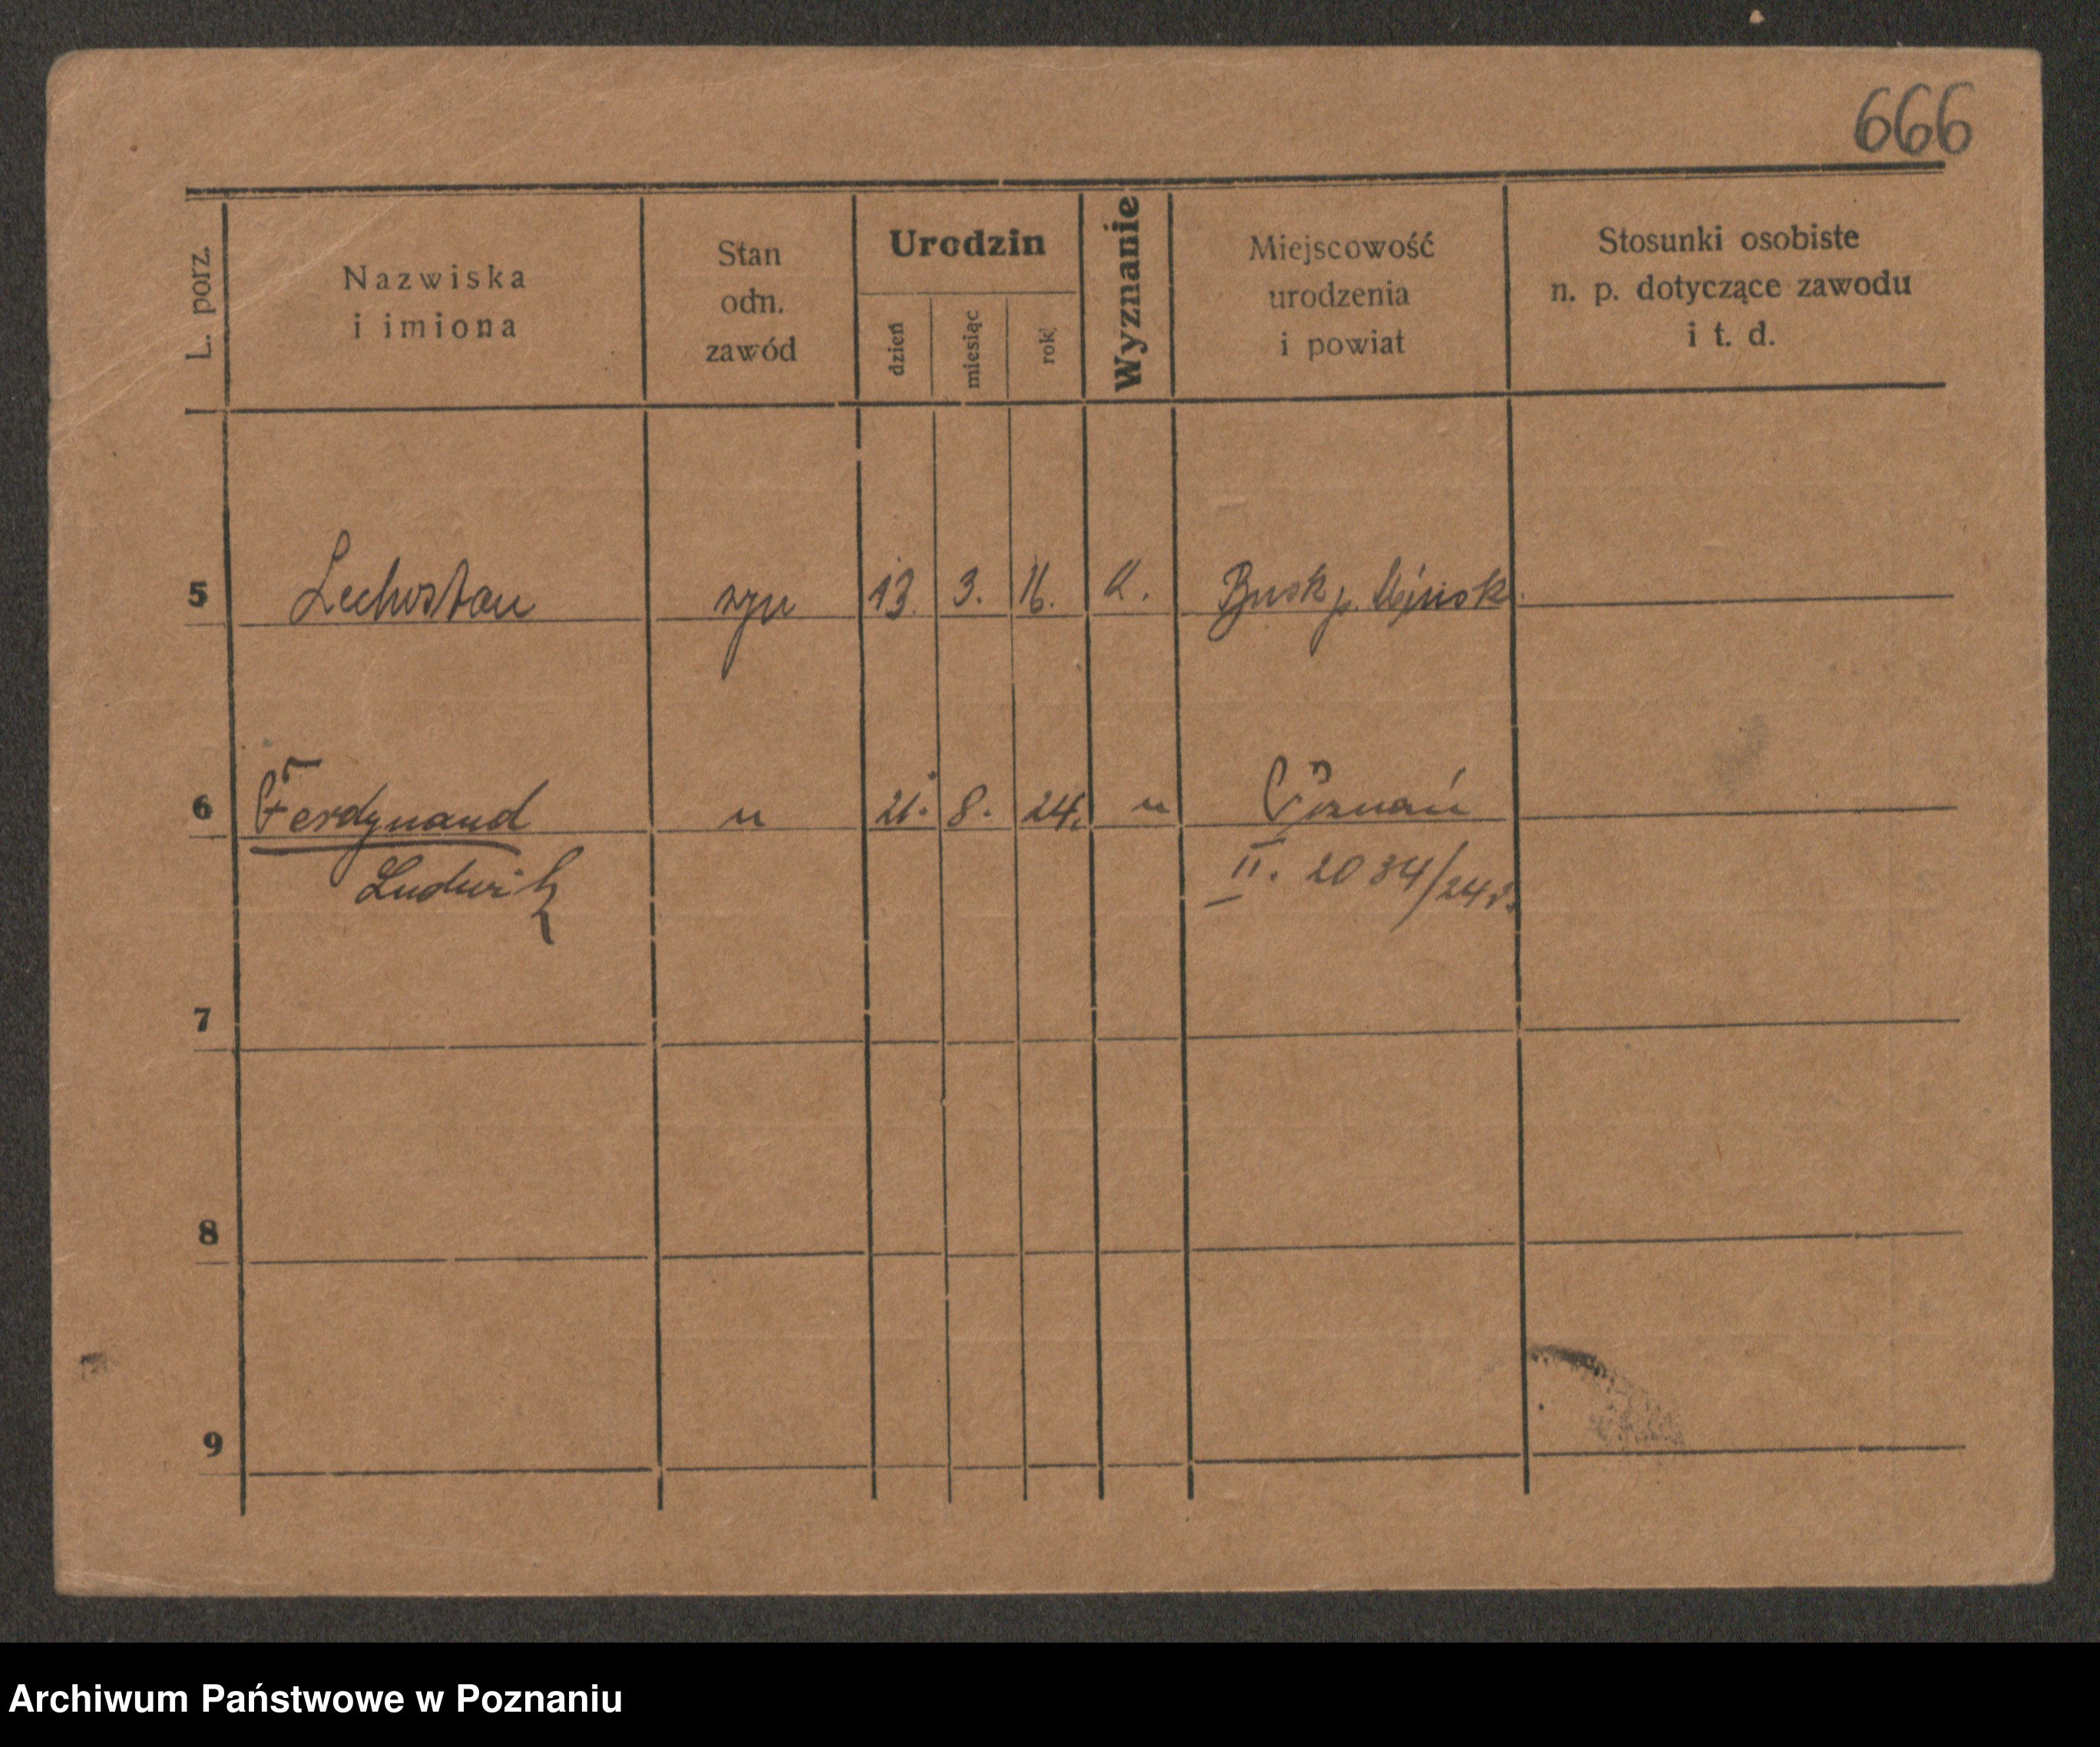 666
L. porz.
Nazwiska
i imiona
Stan
odn.
zawód
Urodzin
dzień
miesiąc
rok
Wyznanie
Miejscowość
urodzenia
i powiat
Stosunki osobiste
n. p. dotyczące zawodu
i t. d.
5 syn 13. 3. 16. k. Busk p.
6 Ferdynand " 21. 8. 24. " Poznań
Ludwik II. 2034/24
7
8
9
Archiwum Państwowe w Poznaniu